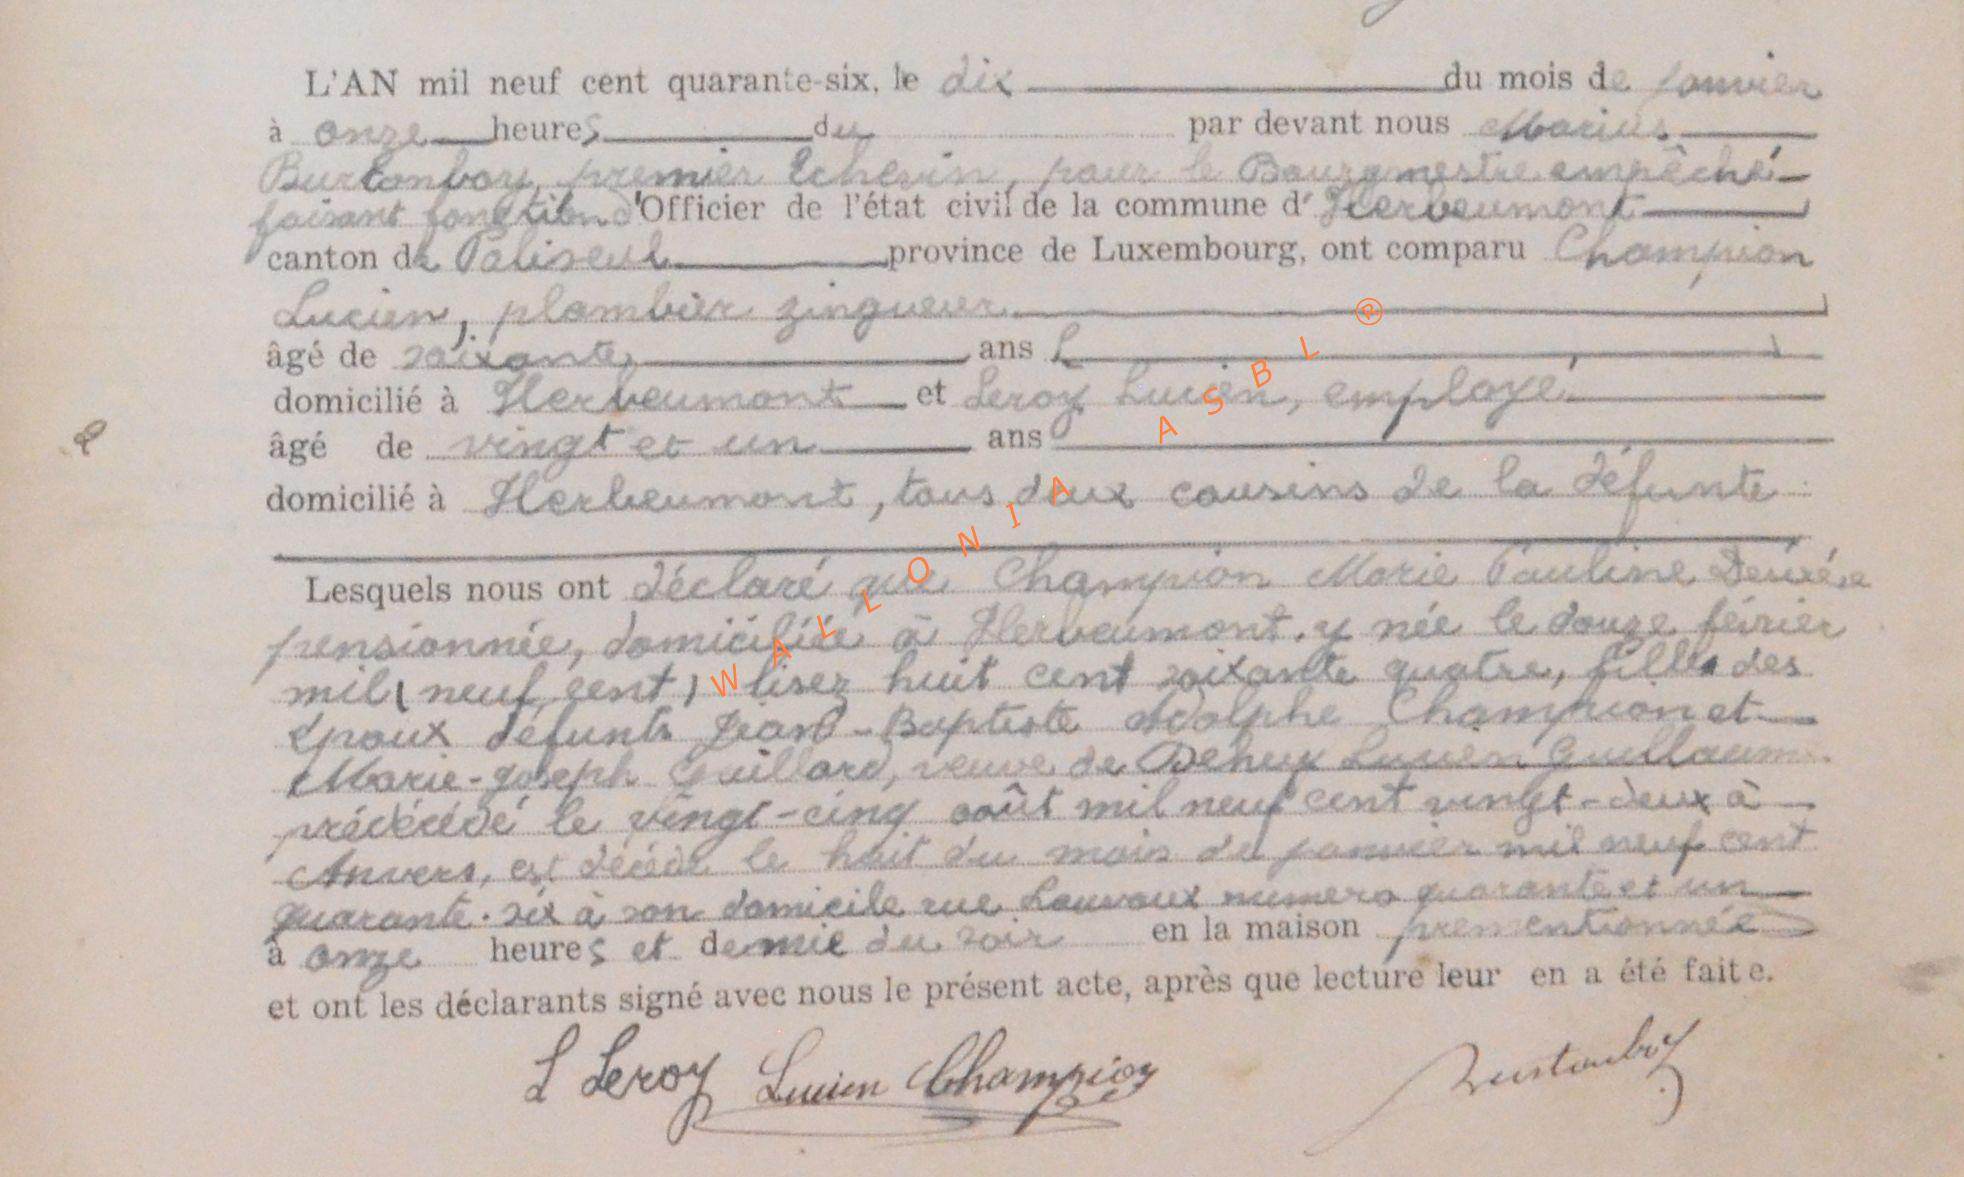 L'AN mil neuf cent quarante-six, le dix du mois de janvier
à onze heures du par devant nous Marius
Burtonboy, premier Echevin, pour le Bourgmestre empêché
faisant fonction d'Officier de l'état civil de la commune d'Herbeumont
canton de Paliseul province de Luxembourg, ont comparu Champion
Lucien, plombier zingueur
âgé de soixante ans
domicilié à Herbeumont et Leroy Lucien, employé
âgé de vingt et un ans
domicilié à Herbeumont, tous deux cousins de la défunte
Lesquels nous ont déclaré que Champion Marie Pauline Désirée
pensionnée, domiciliée à Herbeumont, y née le douze février
mil (neuf cent) lisez huit cent soixante quatre, fille des
époux défunts Jean-Baptiste Adolphe Champion et
Marie-Joseph Guillard, veuve de Deheux Lucien Guillaume
prédécédé le vingt-cinq août mil neuf cent vingt-deux à
Anvers, est décédé le huit du mois de janvier mil neuf cent
quarante-six à son domicile rue Lauvaux numero quarante et un
à onze heures et demie du soir en la maison prementionnée
et ont les déclarants signé avec nous le présent acte, après que lecture leur en a été faite.
L Leroy Lucien Champion Burtonboy
WALLONIA ASBL ®